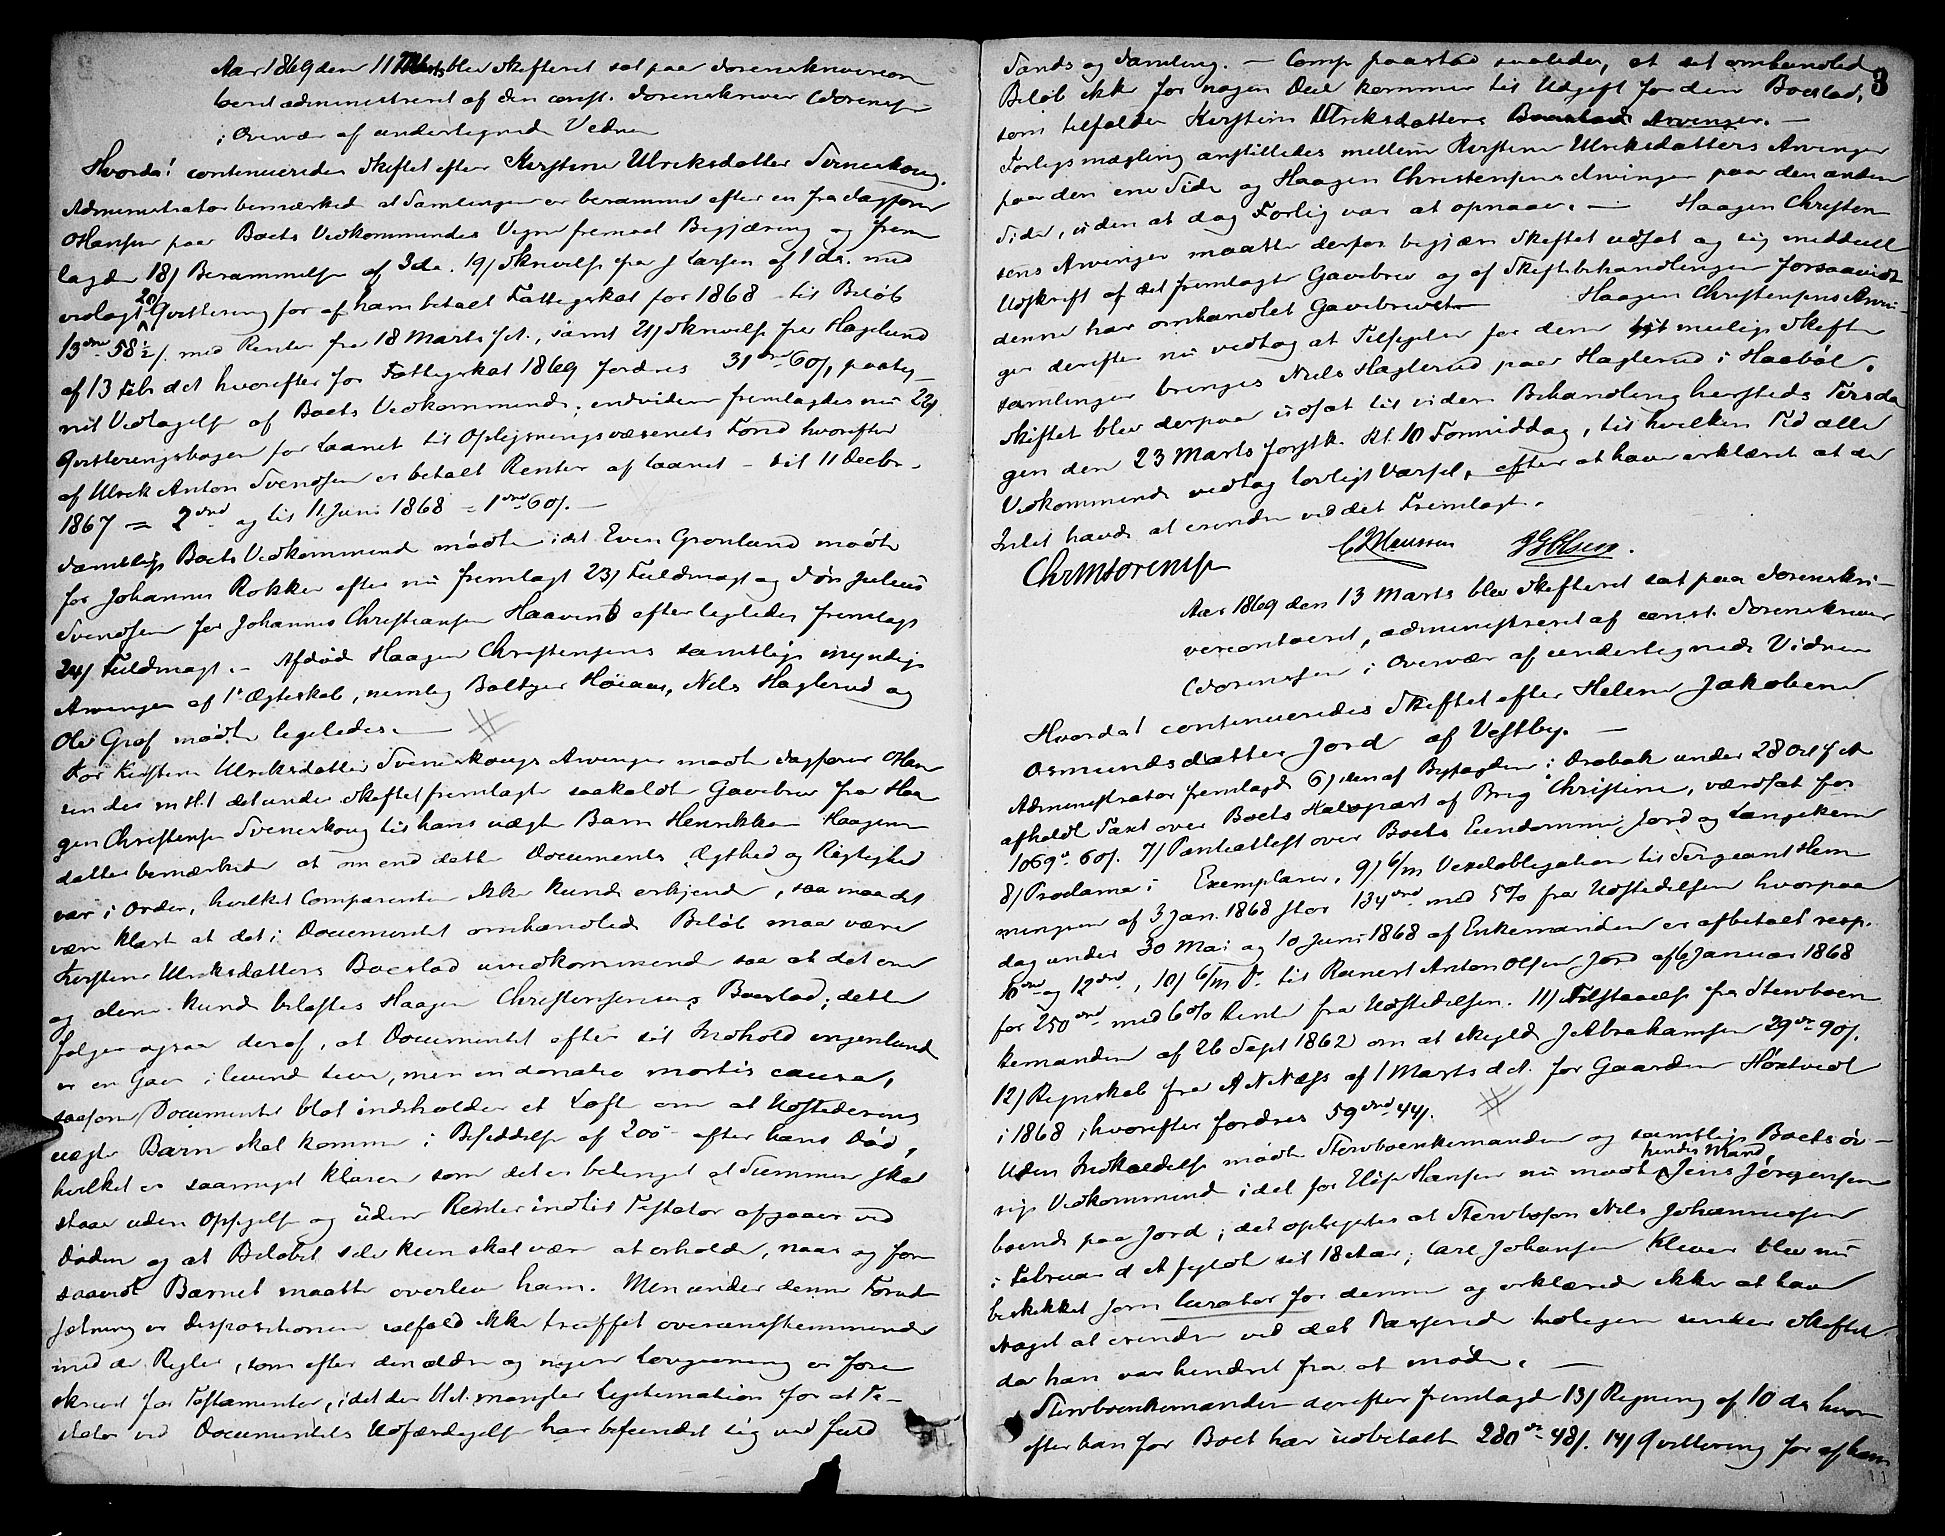 Aar 1869 den 11 Marts blev Skifteret sat paa Sorenskrivercon
toret administreret af den const. Sorenskriver Chr Sorenssen
i Overvær af undertegnede Vidner
Hvorda! continueredes Skiftet efter Kirstine Ulriksdatter Svineskoug.
Administrator bemærkede at Samlingen er berammet efter en fra Sagfører
OHansen paa Boets Vedkommendes Vegne fremsat Begjæring og frem
lagde 18) Berammelse af 3 ds. 19) Skrivelse fra J Larsen af 1 ds. med
vedlagt 20) Qvittering for af ham betalt Fattigskat for 1868 - til Beløb
13 Spd 58½ s. med Renter fra 18 Marts s. A., samt 21) Skrivelse fra Haglund
af 13 Feb. d A hvorefter for Fattigskat 1869 fordres 31 Spd 60 s, paateg-
net Vedtagelse af Boets Vedkommende; endvidere fremlagdes nu 22)
Qvitteringsbogen for Laanet til Oplysningsvæsenets Fond hvorefter
af Ulrik Anton Svendsen er betalt Renter af Laanet - til 11 Decbr.
1867 = 2 Spd og til 11 Juni 1868 = 1 Spd 60 s. -
Samtlige Boets Vedkommende mødte idet Even Grønlund mødte
for Johannes Rokker efter nu fremlagt 23) Fuldmagt og Søn Julius
Svendsen for Johannes Christiansen Haaven efter ligeledes fremlagt
24) Fuldmagt. - Afdøde Haagen Christensens samtlige myndige
Arvinger af 1ste Ægteskab, nemlig Baltzer Høiaas, Nils Haglerud og
Ole Graf mødte ligeledes. -
For Kirstine Ulriksdatter Svineskougs Arvinger mødte Sagfører OHan
sen der m H t det under Skiftet fremlagte saakaldte Gavebrev fra Haa
gen Christensen Svineskoug til hans uægte Barn Henrikke Haagens
datter bemærkede at om end dette Documents Ægthed og Rigtighed
var i Orden, hvilket Comparenten ikke kunde erkjende, saa maa det
være klart at det i Documentet omhandlede Beløb maa være
Kirstine Ulriksdatters Boeslod uvedkommende saa at det ene
og alene kunde belastes Haagen Christensens Boeslod; dette
følger ogsaa deraf, at Documentet efter sit Indhold ingenlunde
er en Gave i levende Live, men en donatio mortis causa,
saasom Documentet blot indeholder et Løfte om at Udstederens
uægte Barn skal komme i Besiddelse af 200 - efter hans Død,
hvilket er saameget klarere som det er betinget at Summen skal
staae uden Opsigelse og uden Renter indtil Testator afgaaer ved
Døden og at Beløbet selv kun skal være at erholde, naar og for
saavidt Barnet maatte overleve ham. Men under denne Forud
sætning er Dispositionen ialfald ikke truffet overensstemmende
med de Regler, som efter den ældre og nyere Lovgivning er fore
skrevet for Testamenter, idet der bl.a. mangler Legitimation for at Te-
stator ved Documentets Udfærdigelse har befundet sig ved fuld
3
Sands og Samling. - Comp. paastod saaledes, at det omhandlede
Beløb ikke for nogen Deel kommer til Udgift for den Boeslod,
som tilfalder Kirstine Ulriksdatters Arvinger. -
Forligsmægling anstilledes mellem Kirstine Ulriksdatters Arvinger
paa den ene Side og Haagen Christensens Arvinger paa den anden
Side, uden at dog Forlig var at opnaae. - Haagen Christen
sens Arvinger maatte derfor begjære Skiftet udsat og sig meddeelt
Udskrift af det fremlagte Gavebrev og af Skiftebehandlingen forsaavidt
denne har omhandlet Gavebrevet - Haagen Christensens Arvin-
ger derefter nu vedtog at Tilsigelse for dem til mulige Skifte
samlinger bringes Niels Haglerud paa Haglerud i Haabøl.
Skiftet blev derpaa udsat til videre Behandling hersteds Tirsda
gen den 23 Marts førstk. Kl. 10 Formiddag, til hvilken Tid alle
Vedkommende vedtog lovligt Varsel, efter at have erklæret at de
Intet havde at erindre ved det Fremlagte.
Chr Sorenssen
Aar 1869 den 13 Marts blev Skifteret sat paa Sorenskri-
vercontoret, administreret af const. Sorenskriver
Chr Sorenssen i Overvær af undertegnede Vidner
Hvorda! continueredes Skiftet efter Helene Jakobine
Osmundsdatter Jord af Vestby. -
Administrator fremlagde 6) den af Byfogden i Drøbak under 28 Oct f A
afholdt Taxt over Boets Halvpart af Brig Christine, værdsat for
1069 Spd 60 s. 7) Pantattest over Boets Eiendomme Jord og Langekjern
8) Proclama i Exemplarer, 9) 6/m Vexelobligation til Sergeant Hem
mingsen af 3 Jan. 1868 stor 134 Spd med 5% fra Udstedelsen hvorpaa
dog under 30 Mai og 10 Juni 1868 af Enkemanden er afbetalt resp.
10 Spd og 12 Spd, 10) 6/m Do til Reinert Anton Olsen Jord af 6 Januar 1868
for 250 Spd med 6% Rente fra Udstedelsen. 11) Tilstaaelse fra Stervboen
kemanden af 26 Sept 1862 om at skylde J Abrahamsen 29 Spd 90 s.
12) Regnskab fra A N Næss af 1 Marts d A. for Gaarden Høxtvedt
i 1868, hvorefter fordres 59 Spd 44 s.
Uden Indkaldelse mødte Stervboenkemanden og samtlige Boets øv-
rige Vedkommende idet for Elise Hansen nu mødte hendes Mand Jens Jørgensen
boende paa Jord; det oplystes at Stervbosøn Nils Johannessen
i Februar d A fyldt sit 18de Aar; Carl Johansen Klever blev nu
beskikket som Curator for denne og erklærede ikke at have
Noget at erindre ved det Passerede tidligere under Skiftet
da han var hindret fra at møde. -
Stervboenkemanden derefter fremlagde 13) Regning af 10 ds hvor
efter han for Boet har udbetalt 280 Spd 48 s. 14) Qvittering for af ham